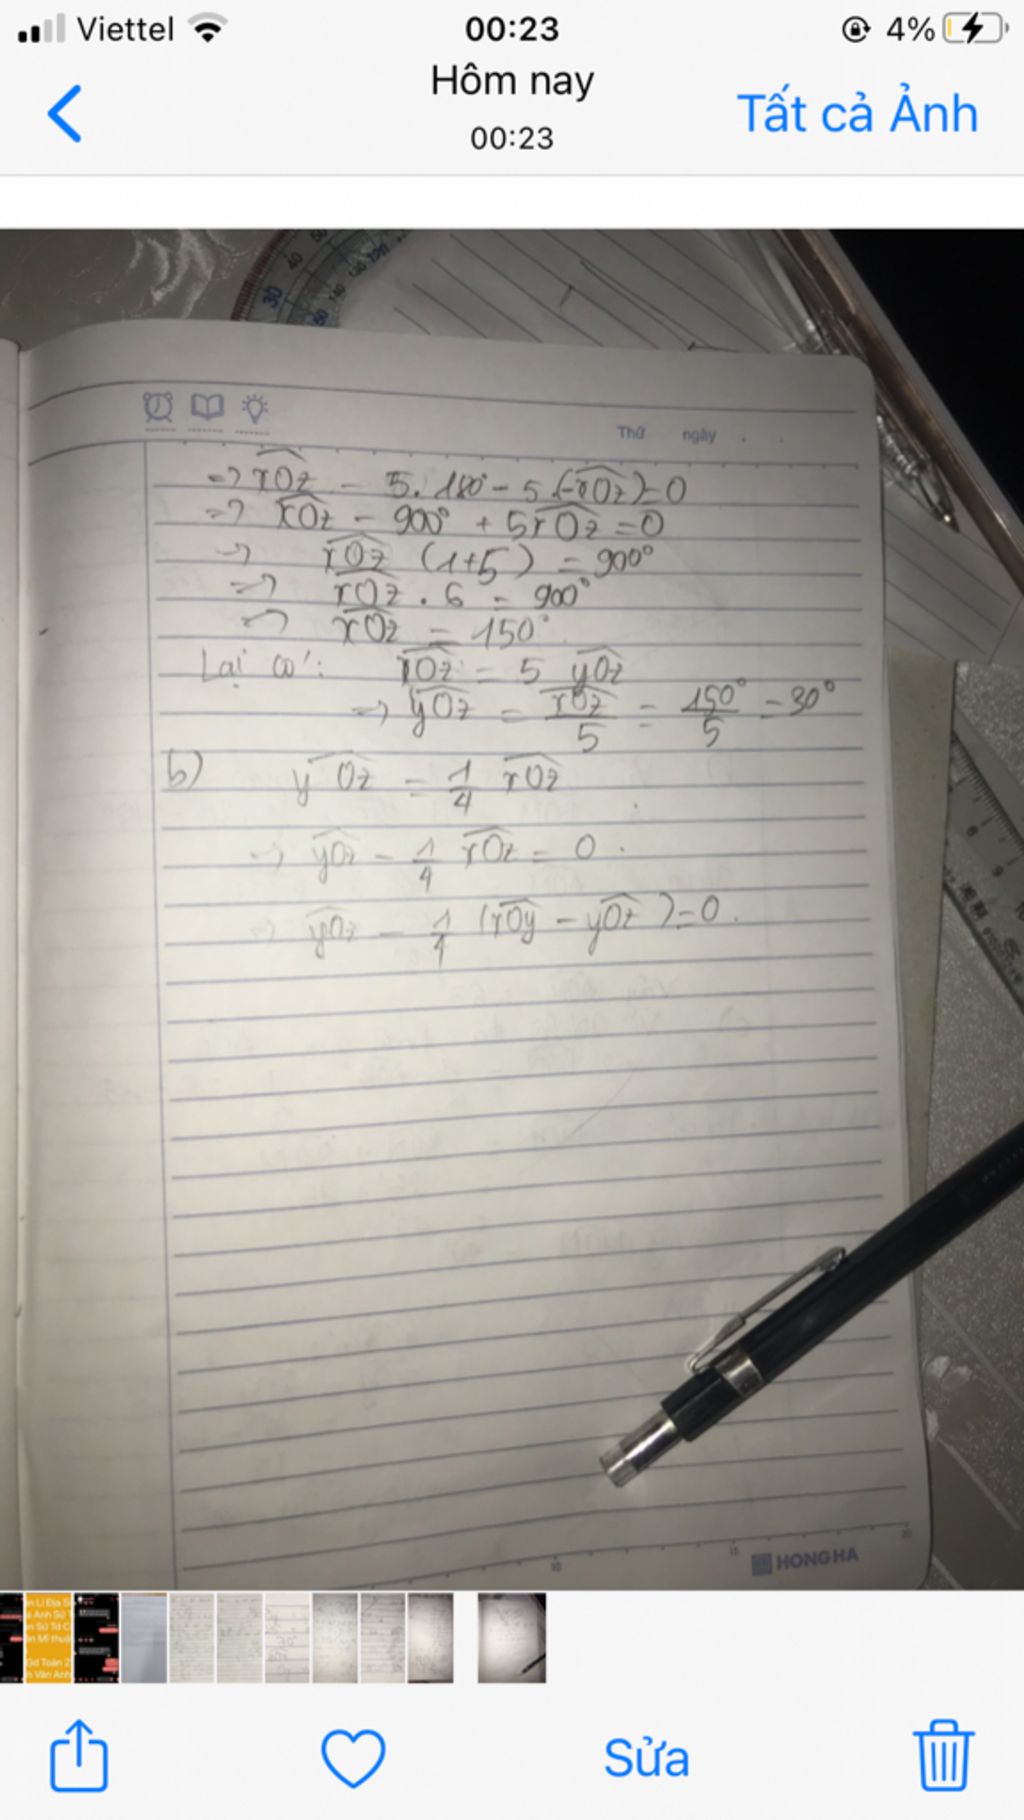 Viettel 00:23 4%
Hôm nay
00:23
Tất cả Ảnh
30 40
Thứ ngày . .
=> xOz - 5. 180° - 5.(-xOz)=0
=> xOz - 900° + 5xOz = 0
=> xOz (1+5) = 900°
=> xOz . 6 = 900°
=> xOz = 150°
Lại có: xOz = 5 yOz
=> yOz = xOz/5 = 150°/5 = 30°
b) yOz = 1/4 xOz
=> yOz - 1/4 xOz = 0 .
=> yOz - 1/4 (xOy - yOz) = 0 .
10 15 20
HONG HA
Sửa